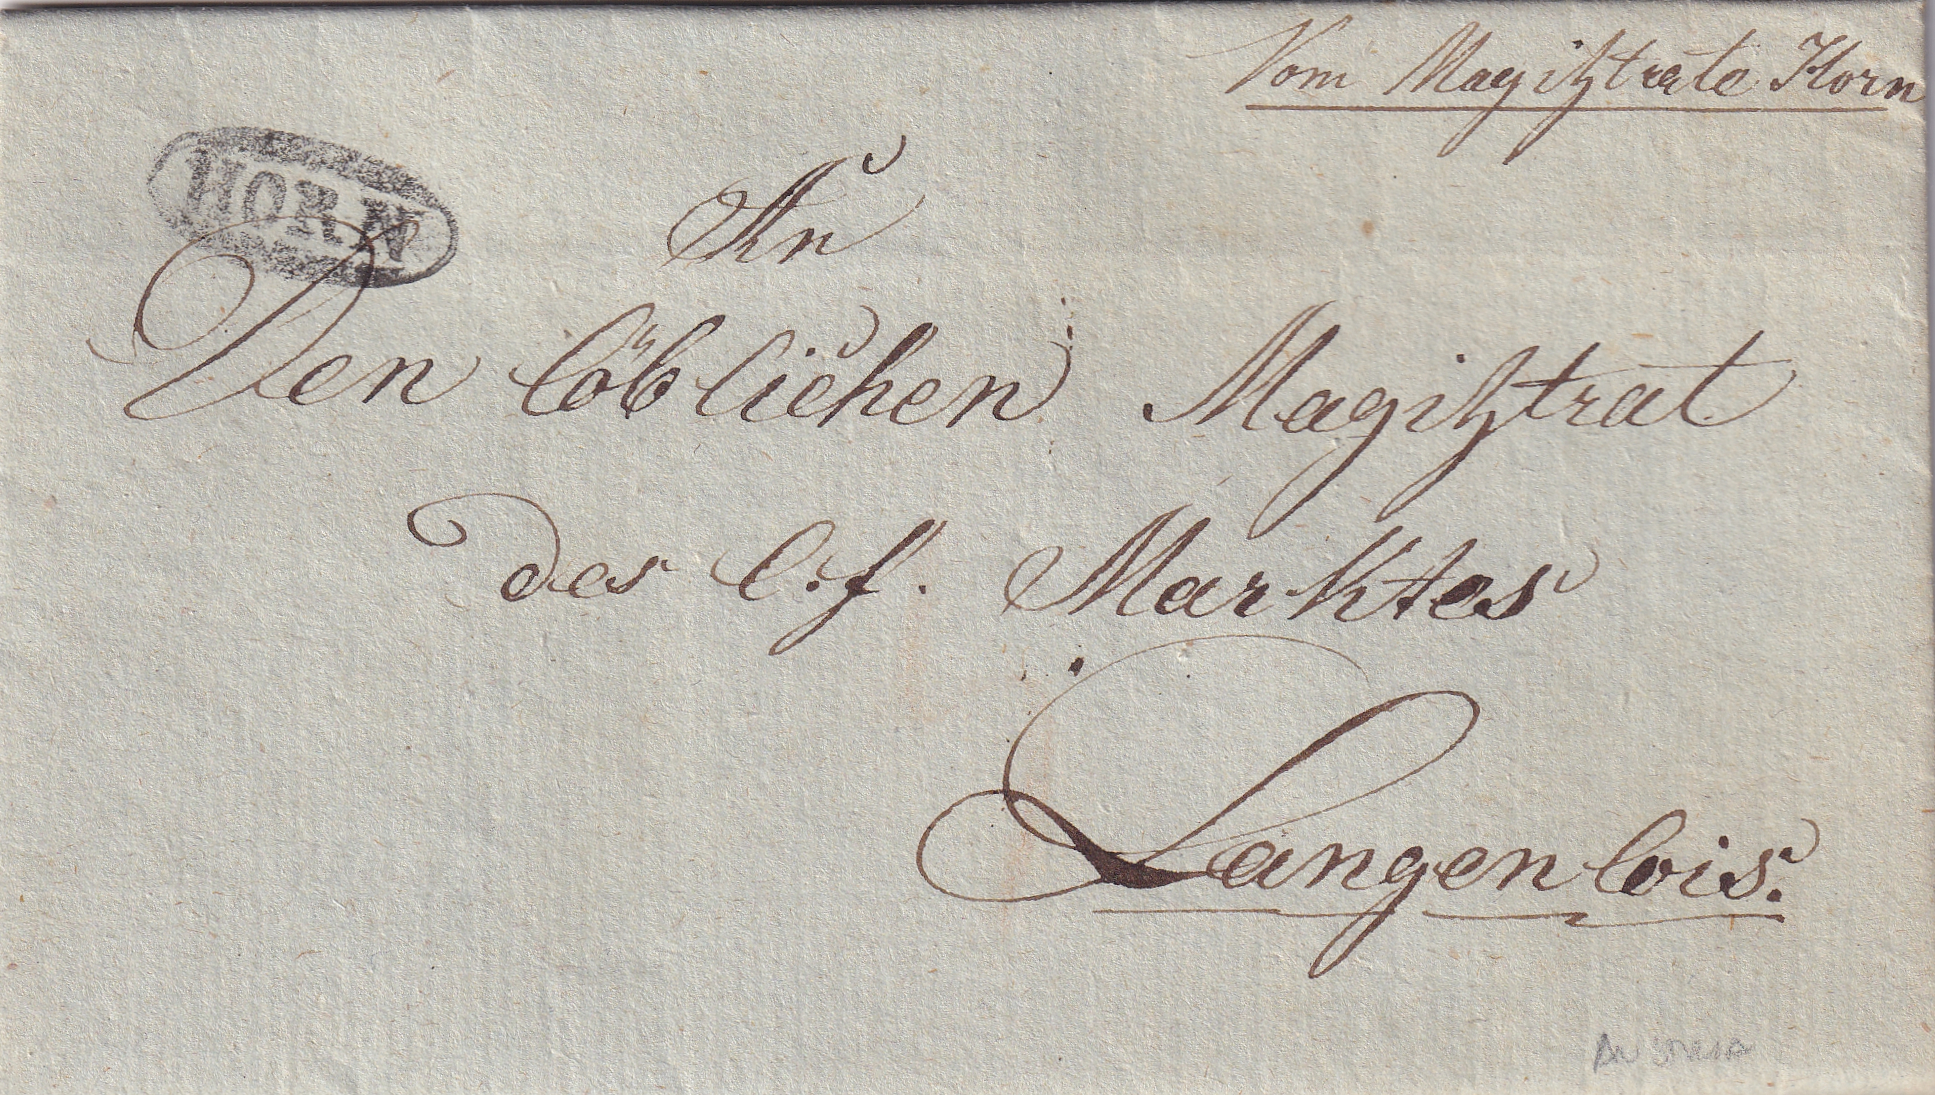 Vom Magiſtrate Horn
HORN
An
Den löblichen Magiſtrat
des l.f. Marktes
Langenlois.